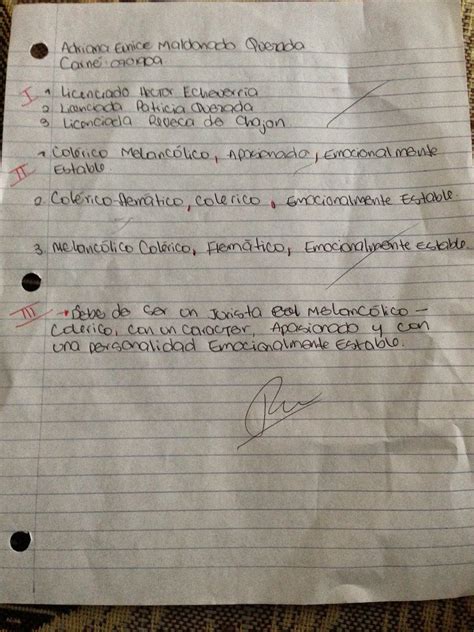 Adriana Eunice Maldonado Quezada
Carné: 0901900A
I 1 Licenciado Hector Echeverria
2 Licenciada Patricia Quezada
3 Licenciada Reveca de Chajon.
1 Colérico Melancólico, Apasionada, Emocionalmente
II Estable.
2. Colérico-Flemático, Colerico, Emocionalmente Estable.
3. Melancólico Colérico, Flemático, Emocionalmente estable.
III Debe de ser un Jurista Melancólico -
Colerico, con un caracter, Apasionado y con
una personalidad Emocionalmente Estable.